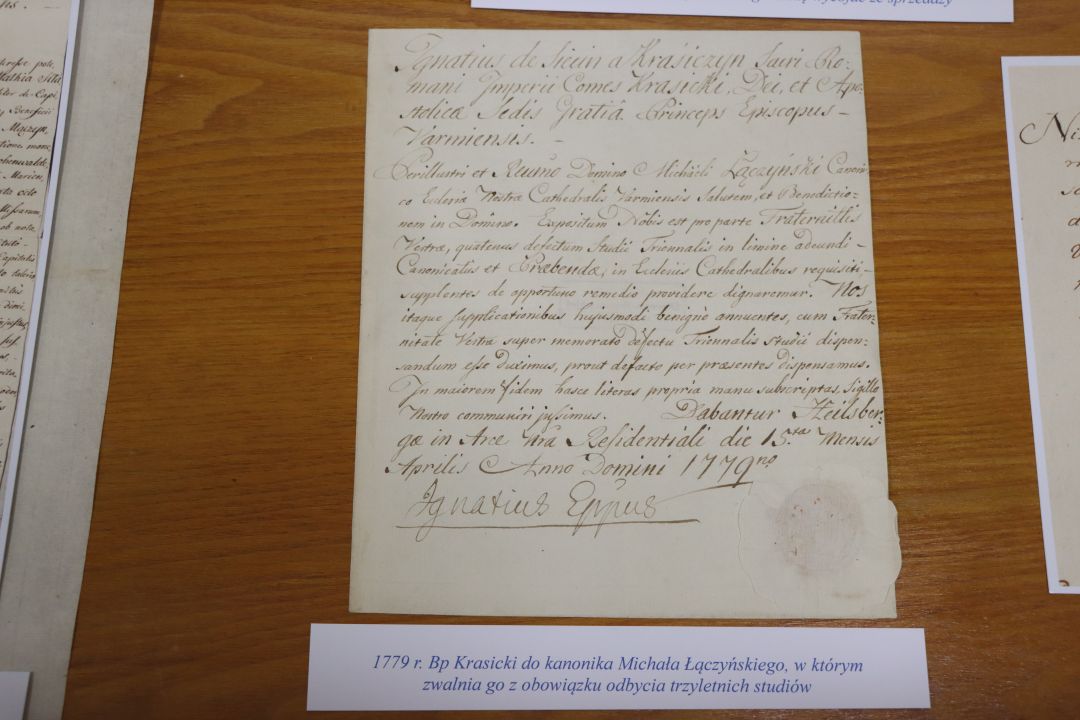 ze sprzedaży
Ignatius de Siecin a Krasiczyn Sacri Ro-
mani Imperii Comes Krasicki, Dei, et Apo-
stolicæ Sedis Gratiâ Princeps Episcopus
Varmiensis.
Perillustri et Rendmo Domino Michaeli Łączyński Canoni-
co Ecclesiæ Nostræ Cathedralis Varmiensis Salutem, et Benedictio-
nem in Domino. Expositum Nobis est pro parte Fraternitatis
Vestræ, quatenus defectum Studii Triennalis in limine adeundi
Canonicatus et Præbendæ, in Ecclesiis Cathedralibus requisiti
supplentes de opportuno remedio providere dignaremur. Nos
itaque supplicationibus hujusmodi benignè annuentes, cum Frater-
nitate Vestra super memorato defectu Triennalis studii dispen-
sandum esse duximus, prout defacto per præsentes dispensamus.
In majorem fidem hasce literas propria manu subscriptas, Sigillo
Nostro communiri jussimus. Dabantur Heilsber-
gæ in Arce Nrâ Residentiali die 15ta Mensis
Aprilis Anno Domini 1779no
Ignatius Eppus
1779 r. Bp Krasicki do kanonika Michała Łączyńskiego, w którym
zwalnia go z obowiązku odbycia trzyletnich studiów